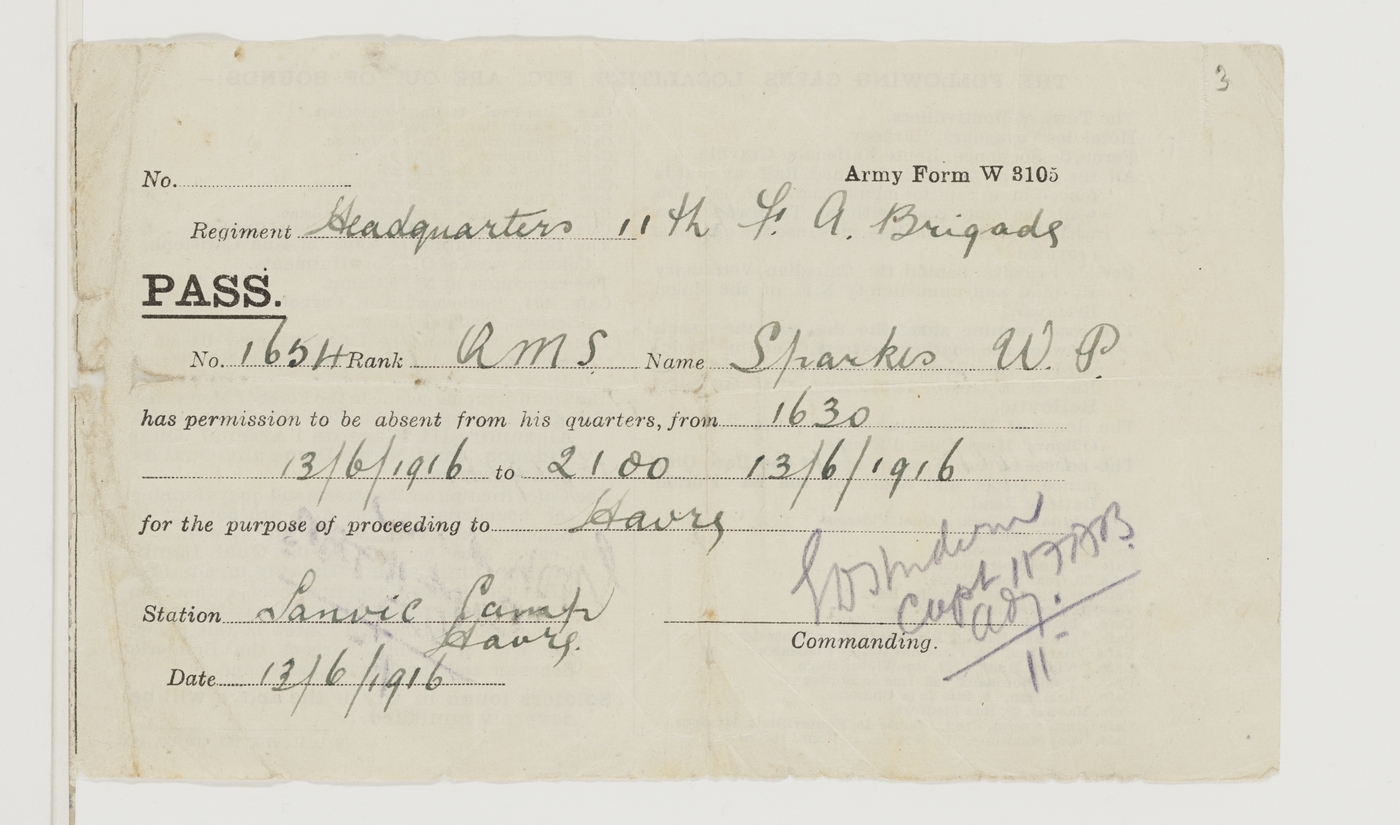 3
No.
Army Form W 3105
Regiment Headquarters 11th F. A. Brigade
PASS.
No. 1654 Rank RMS Name Sparkes W. P.
has permission to be absent from his quarters, from 1630
13/6/1916 to 2100 13/6/1916
for the purpose of proceeding to Havre
Capt. 11 FAB.
Adj.
Station Sanvic Camp
Havre.
Commanding.
11
Date 13/6/1916